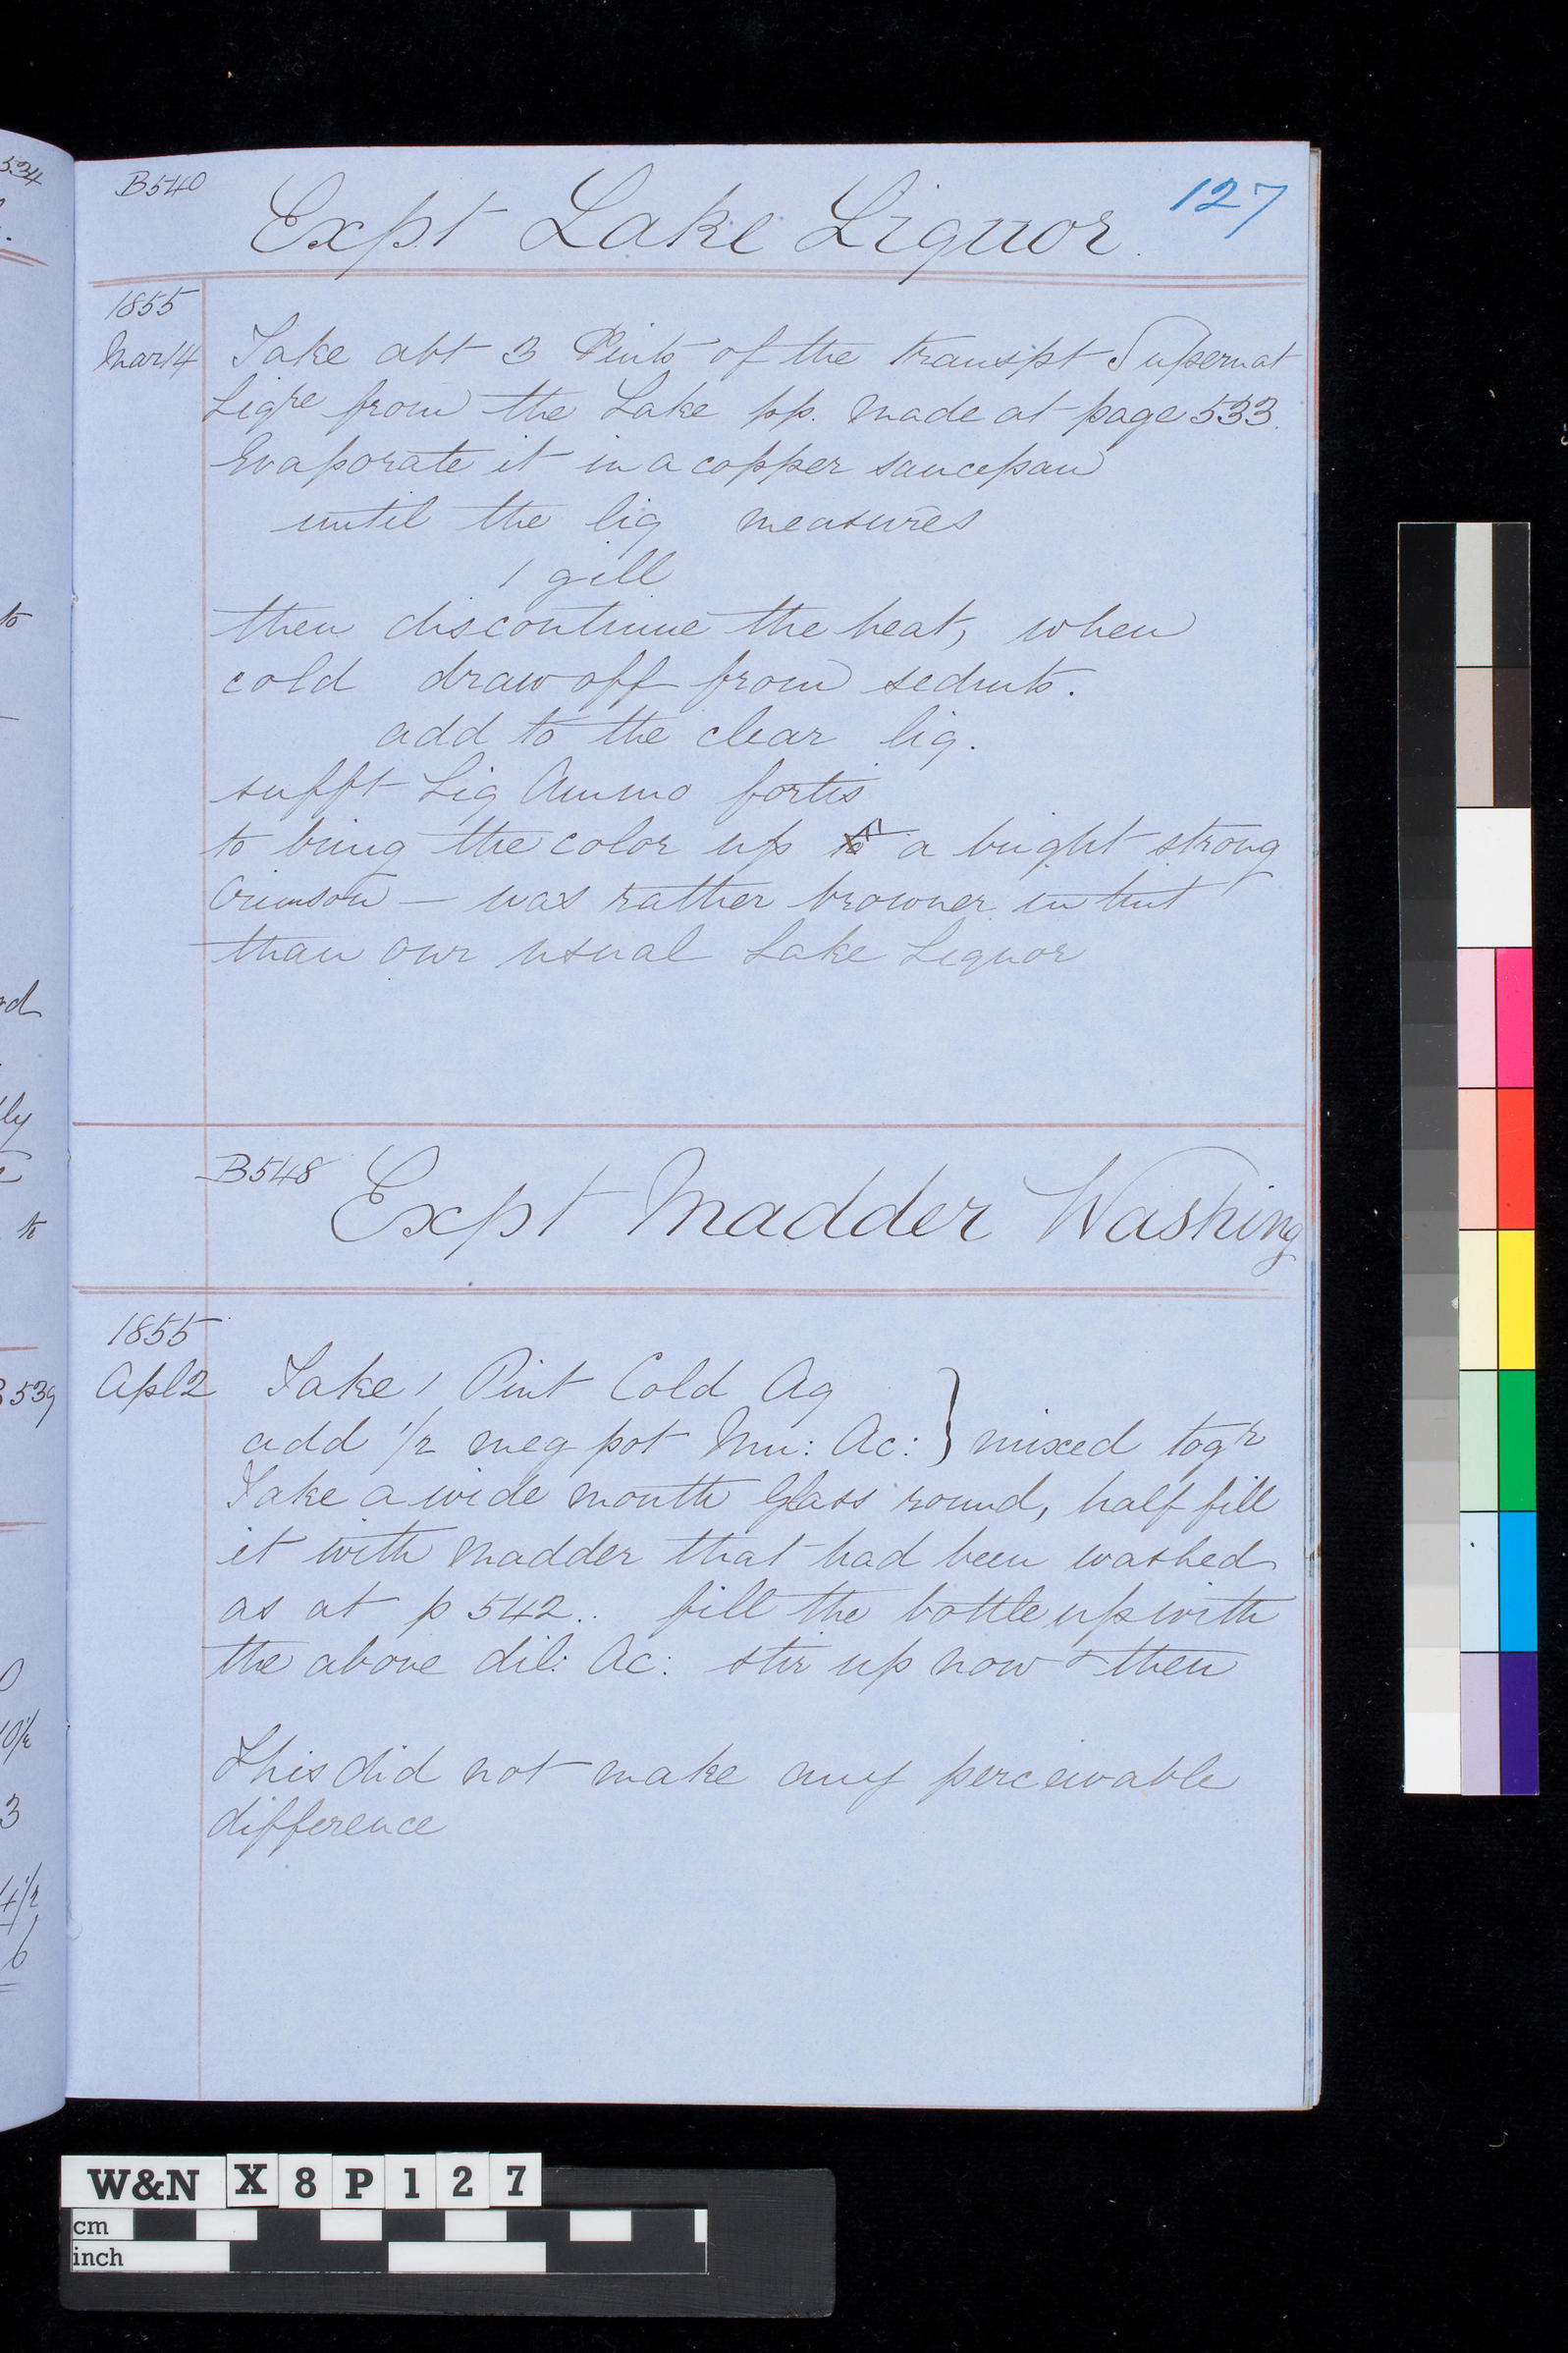 B540
Expt Lake Liquor.
127
1855
Mar 14
Take abt 3 Pints of the transpt Supernat
Liqre from the Lake pp. made at page 533.
Evaporate it in a copper saucepan
until the liq measures
1 gill
then discontinue the heat, when
cold draw off from sedmts.
add to the clear liq.
sufft Liq Ammo fortis
to bring the color up to a bright strong
Crimson — was rather browner in tint
than our usual Lake Liquor
B548
Expt Madder Washing
1855
Apl 2
Take 1 Pint Cold Aq
add 1/2 meg pot Mu: Ac: } mixed togr
Take a wide mouth Glass round, half fill
it with Madder that had been washed
as at p 542.. fill the bottle up with
the above dil: Ac: stir up now & then
This did not make any perceivable
difference
534
to
rd
ly
to
B539
0
10 1/2
3
4 1/2
6
W&N X 8 P 1 2 7
cm
inch